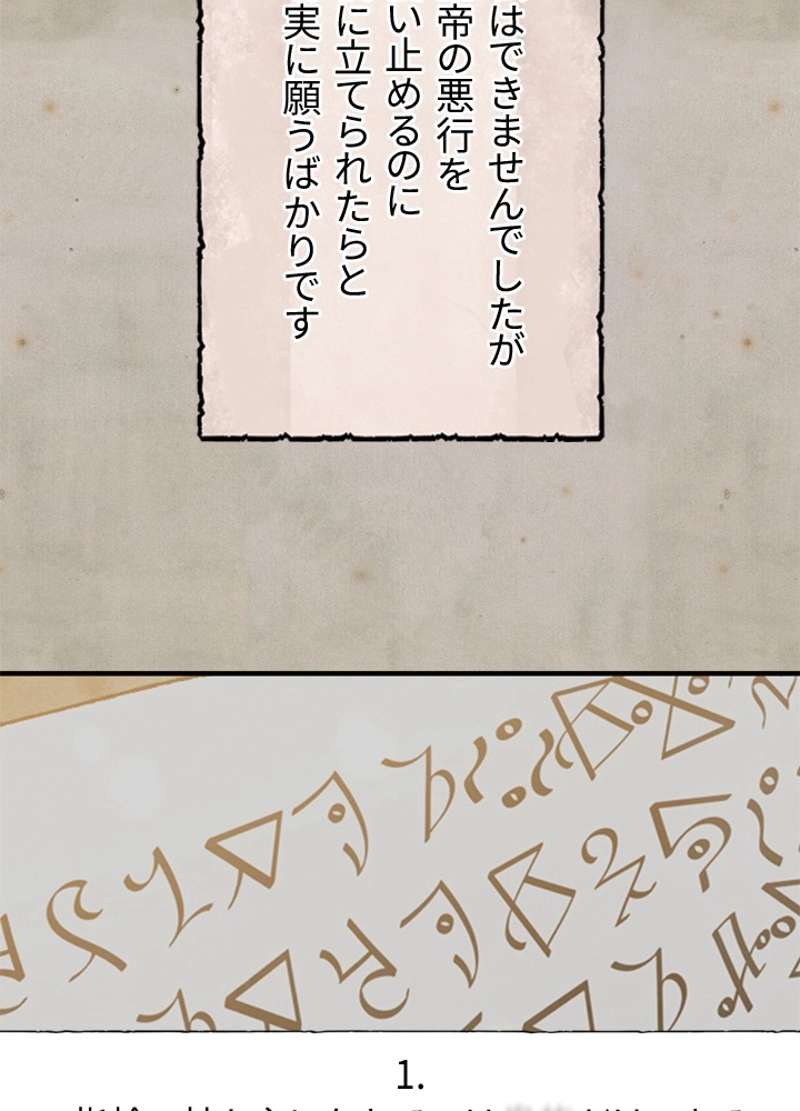 はできませんでしたが
帝の悪行を
い止めるのに
に立てられたらと
実に願うばかりです
1.